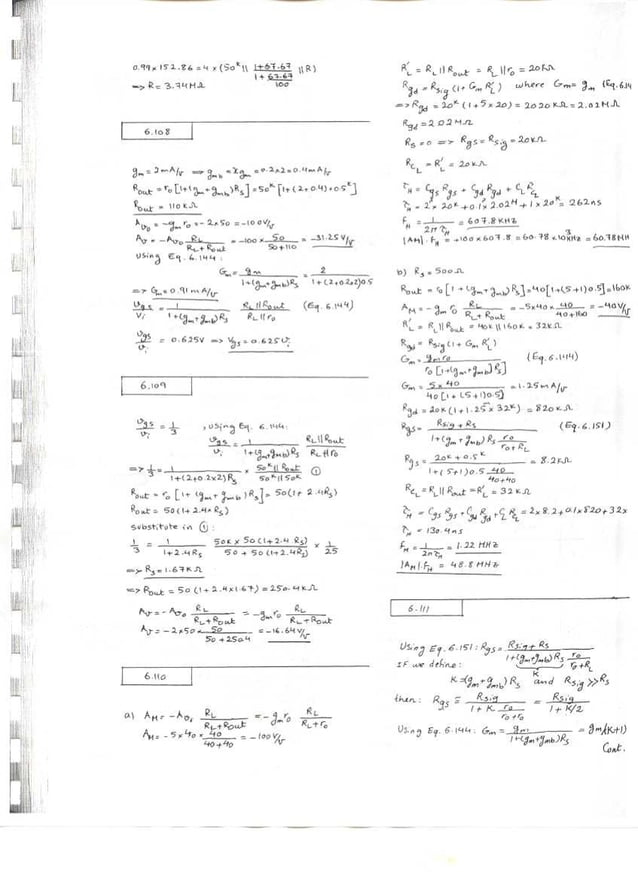 0.99 × 152.86 = 4 × (50ᴷ || (1+67.67)/((1+67.67)/100) || R)
=> R = 3.74MΩ
6.108
gm = 2mA/V => gmb = χgm = 0.2×2 = 0.4mA/V
Rout = ro[1+(gm+gmb)Rs] = 50ᴷ[1+(2+0.4)×0.5ᴷ]
Rout = 110KΩ
Avo = -gm ro = -2×50 = -100V/V
Av = -Avo RL/(RL+Rout) = -100 × 50/(50+110) = -31.25V/V
Using Eq. 6.144:
Gm = gm/(1+(gm+gmb)Rs) = 2/(1+(2+0.2×2)0.5
=> Gm = 0.91mA/V
vgs/vi = 1/(1+(gm+gmb)Rs) RL||Rout/RL||ro (Eq. 6.144)
vgs/vi = 0.625V => vgs = 0.625vi
6.109
vgs/vi = 1/3 , using Eq. 6.144:
vgs/vi = 1/(1+(gm+gmb)Rs) RL||Rout/RL||ro
=> 1/3 = 1/(1+(2+0.2×2)Rs) × 50ᴷ||Rout/50ᴷ||50ᴷ ①
Rout = ro[1+(gm+gmb)Rs] = 50(1+2.4Rs)
Rout = 50(1+2.4×Rs)
substitute in ①:
1/3 = 1/(1+2.4Rs) 50K×50(1+2.4Rs)/(50+50(1+2.4Rs)) × 1/25
=> Rs = 1.67KΩ
=> Rout = 50(1+2.4×1.67) = 250.4KΩ
Av = -Avo RL/(RL+Rout) = -gm ro RL/(RL+Rout)
Av = -2×50 × 50/(50+250.4) = -16.64V/V
6.110
a) AM = -Avo RL/(RL+Rout) = -gm ro RL/(RL+ro)
AM = -5×40 × 40/(40+40) = -100V/V
R'L = RL||Rout = RL||ro = 20KΩ
Rgd = Rsig(1+GmR'L) where Gm = gm (Eq. 6.14
=> Rgd = 20ᴷ(1+5×20) = 2020KΩ = 2.02MΩ
Rgd = 2.02MΩ
Rs = 0 => Rgs = Rsig = 20KΩ
RCL = R'L = 20KΩ
τH = Cgs Rgs + Cgd Rgd + CL RCL
τH = 2×20ᴷ + 0.1×2.02M + 1×20ᴷ = 262ns
FH = 1/(2πτH) = 607.8KHz
|AM|.FH = +100×607.8 = 60.78×10³KHz = 60.78MHz
b) Rs = 500Ω
Rout = ro[1+(gm+gmb)Rs] = 40[1+(5+1)0.5] = 160K
AM = -gm ro RL/(RL+Rout) = -5×40 × 40/(40+160) = -40V/V
R'L = RL||Rout = 40K||160K = 32KΩ
Rgd = Rsig(1+GmR'L)
Gm = gm ro/(ro[1+(gm+gmb)Rs]) (Eq. 6.144)
Gm = 5×40/(40[1+(5+1)0.5]) = 1.25mA/V
Rgd = 20K(1+1.25×32K) = 820KΩ
Rgs = (Rsig+Rs)/(1+(gm+gmb)Rs ro/(ro+RL)) (Eq. 6.151)
Rgs = (20K+0.5ᴷ)/(1+(5+1)0.5 40/(40+40)) = 8.2KΩ
RCL = RL||Rout = R'L = 32KΩ
τH = Cgs Rgs + Cgd Rgd + CL RCL = 2×8.2+0.1×820+32×
τH = 130.4ns
FH = 1/(2πτH) = 1.22MHz
|AM|.FH = 48.8MHz
6.111
Using Eq. 6.151: Rgs = (Rsig+Rs)/(1+(gm+gmb)Rs ro/(ro+RL))
IF we define: K
K=(gm+gmb)Rs and Rsig>>Rs
then: Rgs ≅ Rsig/(1+K ro/(ro+ro)) = Rsig/(1+K/2)
Using Eq. 6.144: Gm = gm/(1+(gm+gmb)Rs) = gm/(K+1)
Cont.